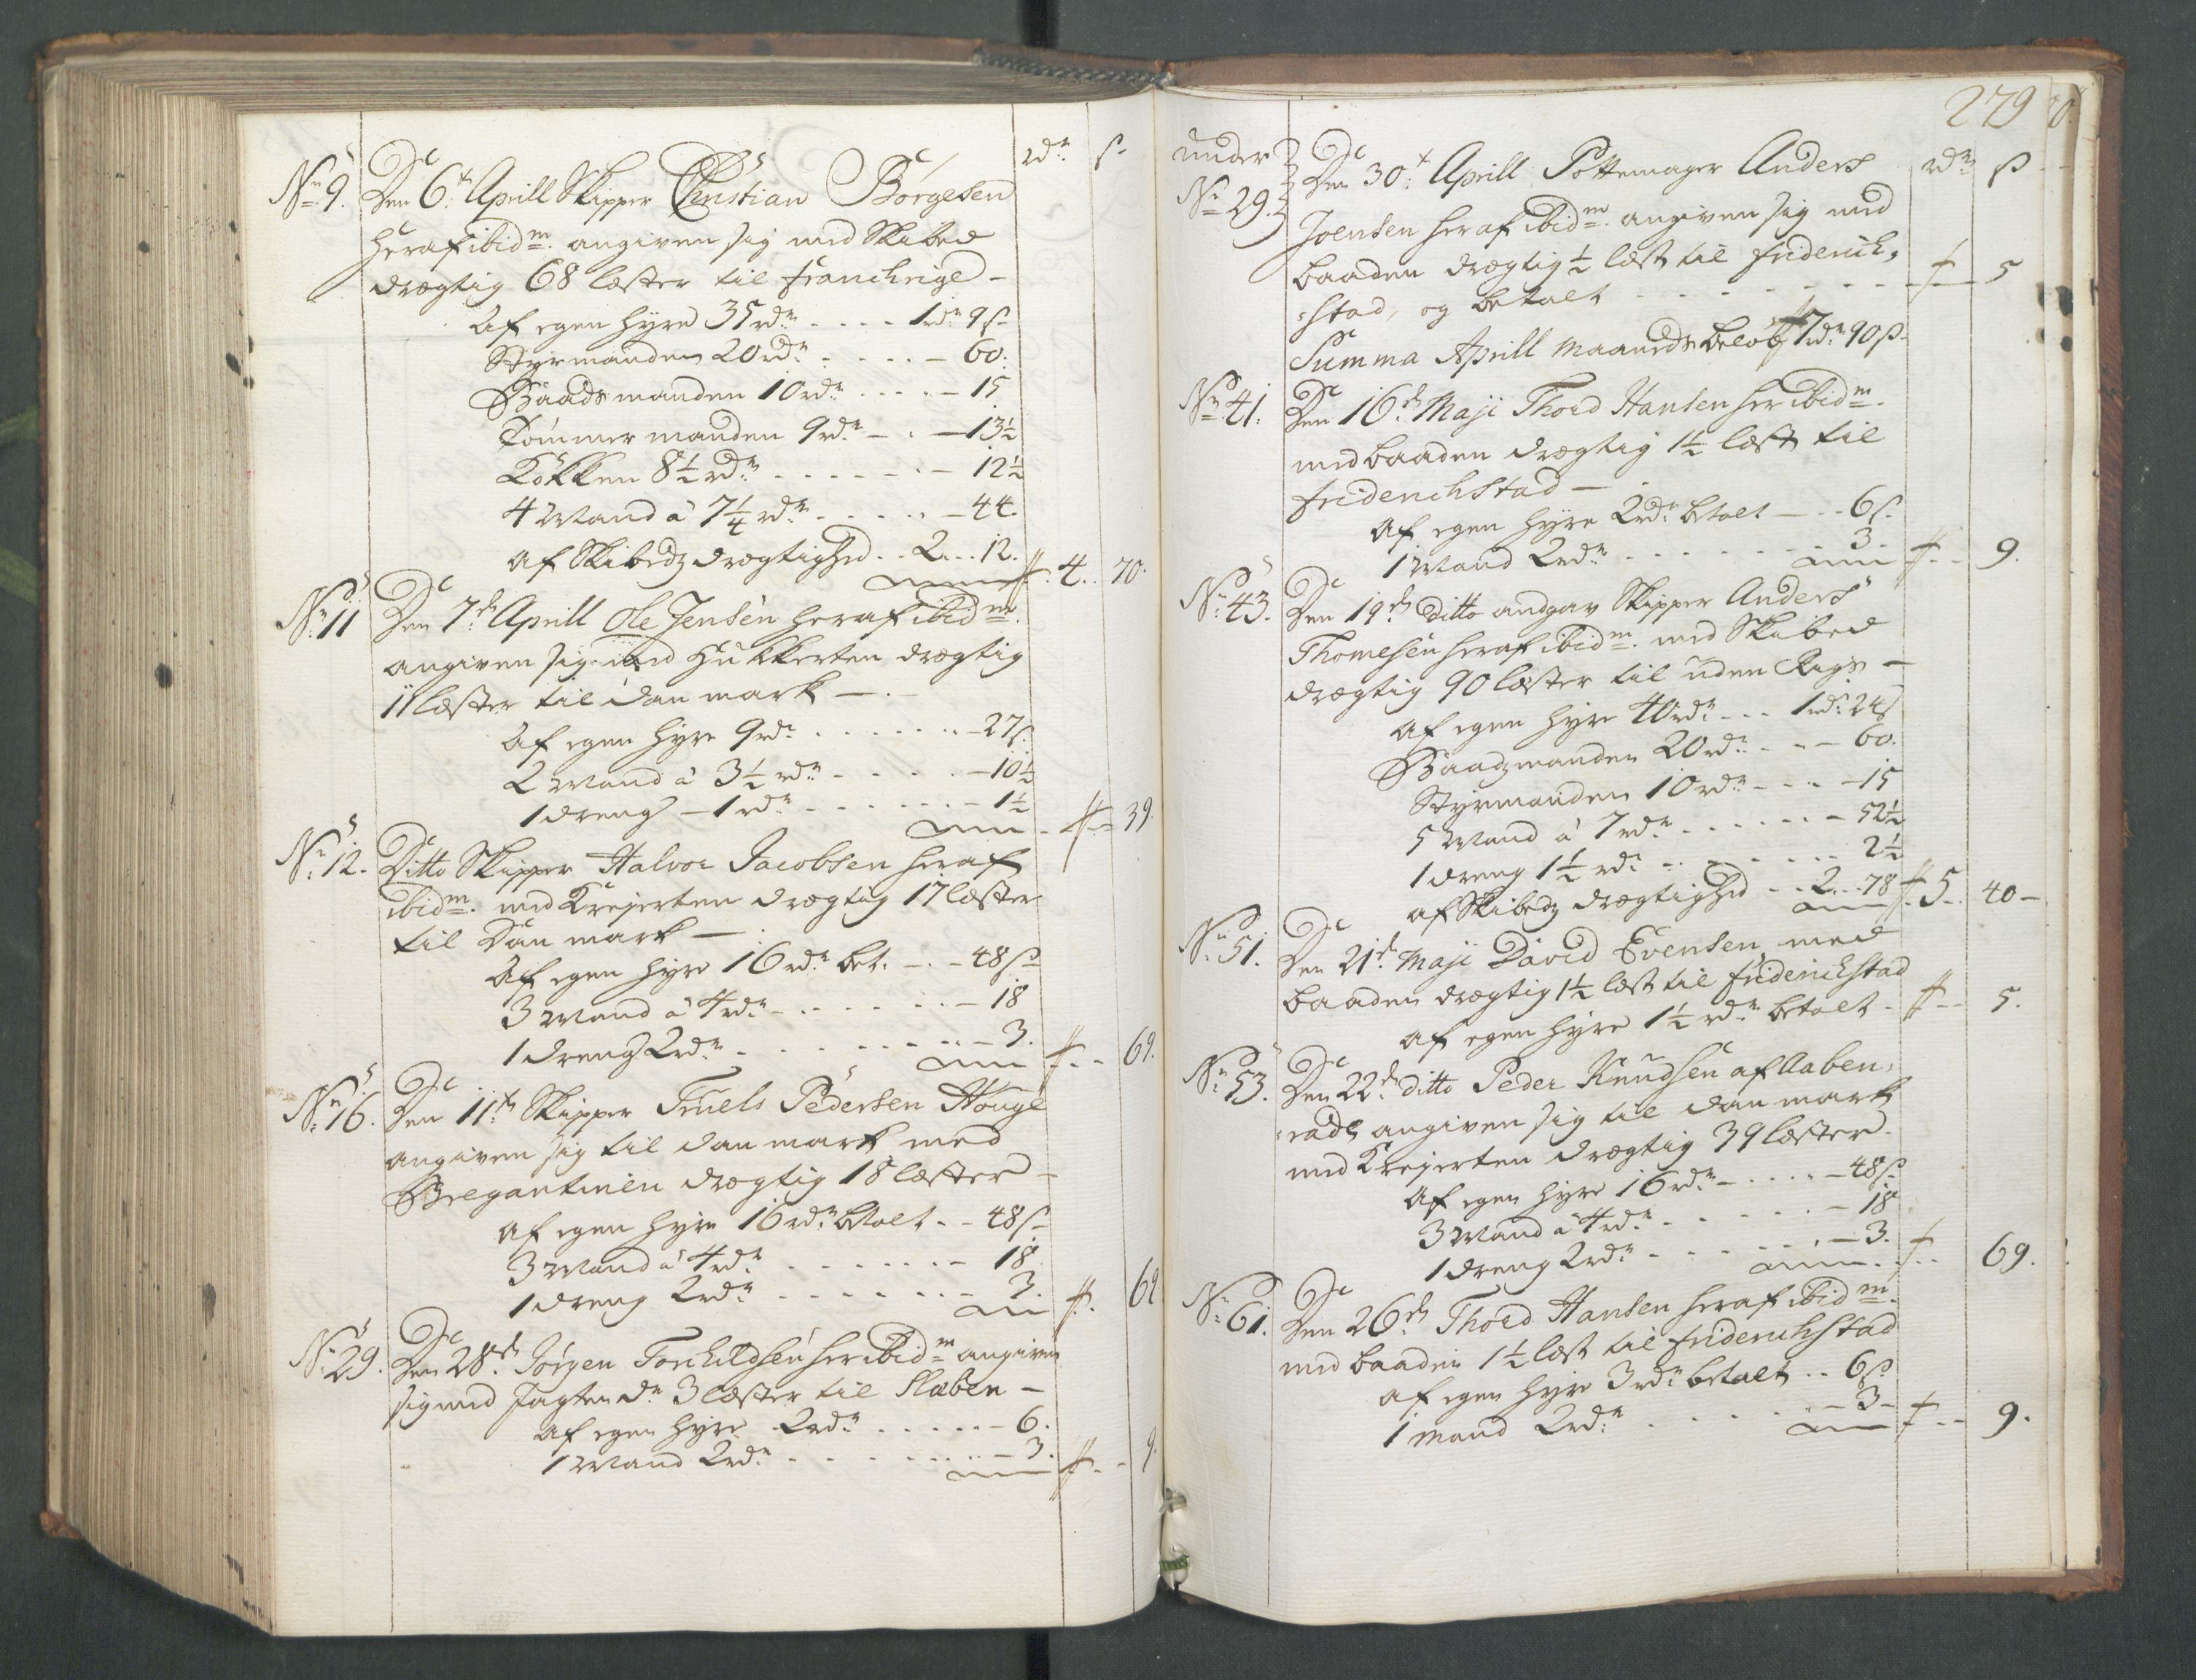 rdr ß
No 9. Den 6t Aprill Skipper Christian Börgesen
heraf ibidm. angiven sig med Skibed
drægtig 68 læster til franchrige –
Af egen hÿre 35 rdr . . . . 1 rdr 9 ß
Styrmanden 20 rdr . . . . – 60.
Baadsmanden 10 rdr . . . . – 15
Tömmermanden 9 rdr – . – 13½
Kokken 8½ rdr . . . . . – 12½
4 Mand á 7¼ rdr . . . . – 44.
af Skibedz drægtighed . . 2 . . . 12. 4 . . 70.
No 11 Den 7de Aprill Ole Jensen heraf ibidm.
angiven sig med Hukkerten drægtig
11 læster til Danmark – .
Af egen hyre 9 rdr . . . . . . – 27 ß.
2 Mand á 3½ rdr . . . . – 10½
1 dreng – 1 rdr . . . . . . – 1½ 39.
No 12. Ditto Skipper Halvor Jacobsen heraf
ibidm. med Krejerten drægtig 17 læster
til Danmark – .
Af egen hyre 16 rdr bet. – . – 48 ß
3 Mand á 4 rdr . . . . . . – 18
1 dreng 2 rdr . . . . . . . – 3. 69.
No 16. Den 11te Skipper Truels Pedersen Houge
angiven sig til Danmark med
Bregantinen drægtig 18 læster –
Af egen hyre 16 rdr betalt . . 48 ß
3 Mand á 4 rdr . . . . . . – 18
1 dreng 2 rdr . . . . . . – 3. 69
No 29. Den 28de Jörgen Torchildsen her ibidm angiven
sig med Jagten dr. 3 læster til Slæben –
af egen hyre 2 rdr . . . . . – 6.
1 Mand 2 rdr . . . . . . . – 3. 9.
279
rdr ß
under No 29. Den 30t Aprill Pottemager Anders
Joensen heraf ibidm. angiven sig med
baaden drægtig ½ læst til Friderich-
stad, og betalt . . . . . . . 5
Summa Aprill Maanedz beløb 7 rdr 90 ß
No 41. Den 16de Maji Thord Hansen her ibidm.
med baaden drægtig 1½ læst til
friderichstad – .
Af egen hyre 2 rdr betalt – . . 6 ß.
1 Mand 2 rdr . . . . . . . 3. 9.
No 43. Den 19de Ditto andgav Skipper Anders
Thomesen heraf ibidm. med Skibed
drægtig 90 læster til uden Rigs –
Af egen hyre 40 rdr . . . 1 rdr 24 ß
Baadzmanden 20 rdr . . – 60.
Styrmanden 10 rdr . . . – 15
5 Mand á 7 rdr . . . . . – 52½
1 dreng 1½ rdr . . . . . . . 2½
af Skibedz drægtighed . . 2 . . . 78 5 . . 40 –
No 51. Den 21de Maji David Evensen med
baaden drægtig 1½ læst til friderichstad
af egen hyre 1½ rdr betalt . 5.
No 53. Den 22de ditto Peder Knudsen af Aaben-
rade angiven sig til Danmark
med Krejerten drægtig 39 læster.
Af egen hyre 16 rdr . . . . – 48 ß
3 Mand á 4 rdr . . . . . . – 18
1 dreng 2 rdr . . . . . . – 3. 69.
No 61. Den 26de Thord Hansen heraf ibidm.
med baaden 1½ læst til friderichstad
af egen hyre 3 rdr betalt . . 6 ß
1 mand 2 rdr . . . . . . – 3 – 9.